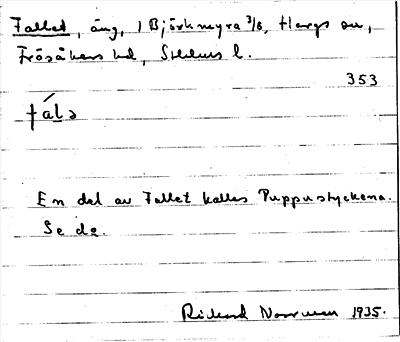 Fallet, äng, 1 Björkmyra 3/8, Hargs sn,
Frösåkers hd, Sthlms l.
353
fála
En del av Fallet kallas Puppustyckena.
Se de.
Rickard Norrman 1935.